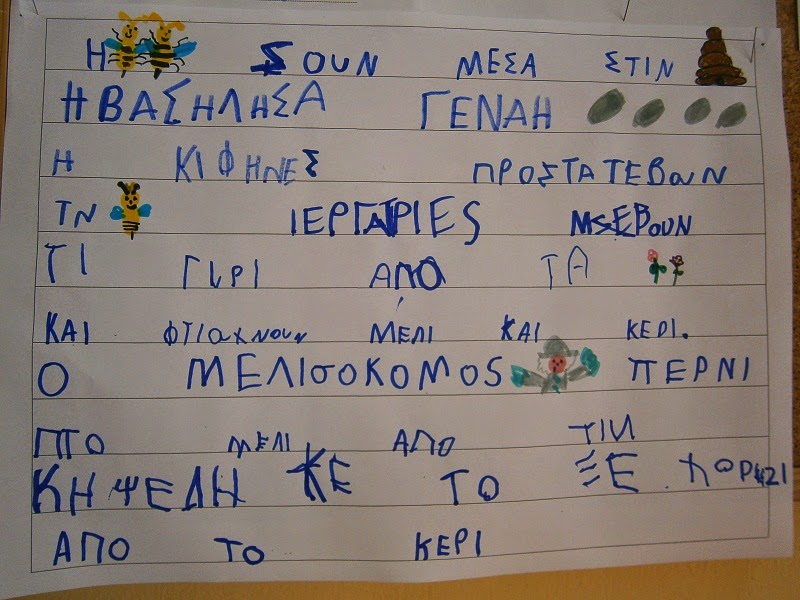 Η ΖΟΥΝ ΜΕΣΑ ΣΤΙΝ
Η ΒΑΣΗΛΗΣΑ ΓΕΝΑΗ
Η ΚΙΦΗΝΕΣ ΠΡΟΣΤΑΤΕΒΟΥΝ
ΤΝ ΙΕΡΓΑΤΡΙΕΣ ΜΣΕΒΟΥΝ
ΤΙ ΓΙΡΙ ΑΠΟ ΤΑ
ΚΑΙ ΦΤΙΑΧΝΟΥΝ ΜΕΛΙ ΚΑΙ ΚΕΡΙ.
Ο ΜΕΛΙΣΟΚΟΜΟΣ ΠΕΡΝΙ
ΠΤΟ ΜΕΛΙ ΑΠΟ ΤΙΝ
ΚΗΨΕΛΗ ΚΕ ΤΟ ΞΕ
ΑΠΟ ΤΟ ΚΕΡΙ